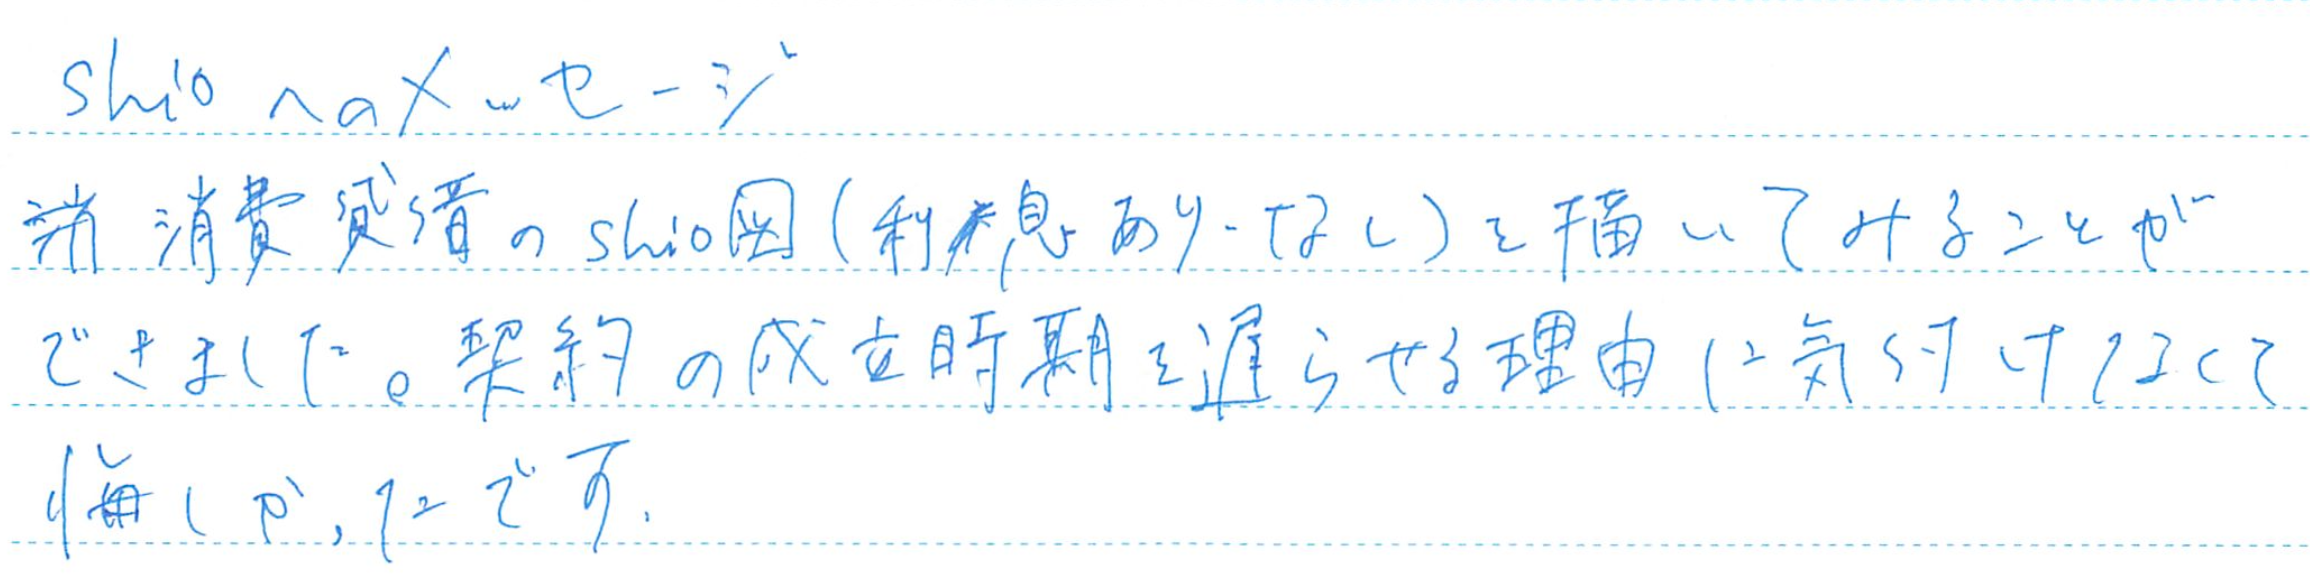 shioへのメッセージ
消費貸借のshio図(利息あり・なし)を描いてみることが
できました。契約の成立時期を遅らせる理由に気付けなくて
悔しかったです.